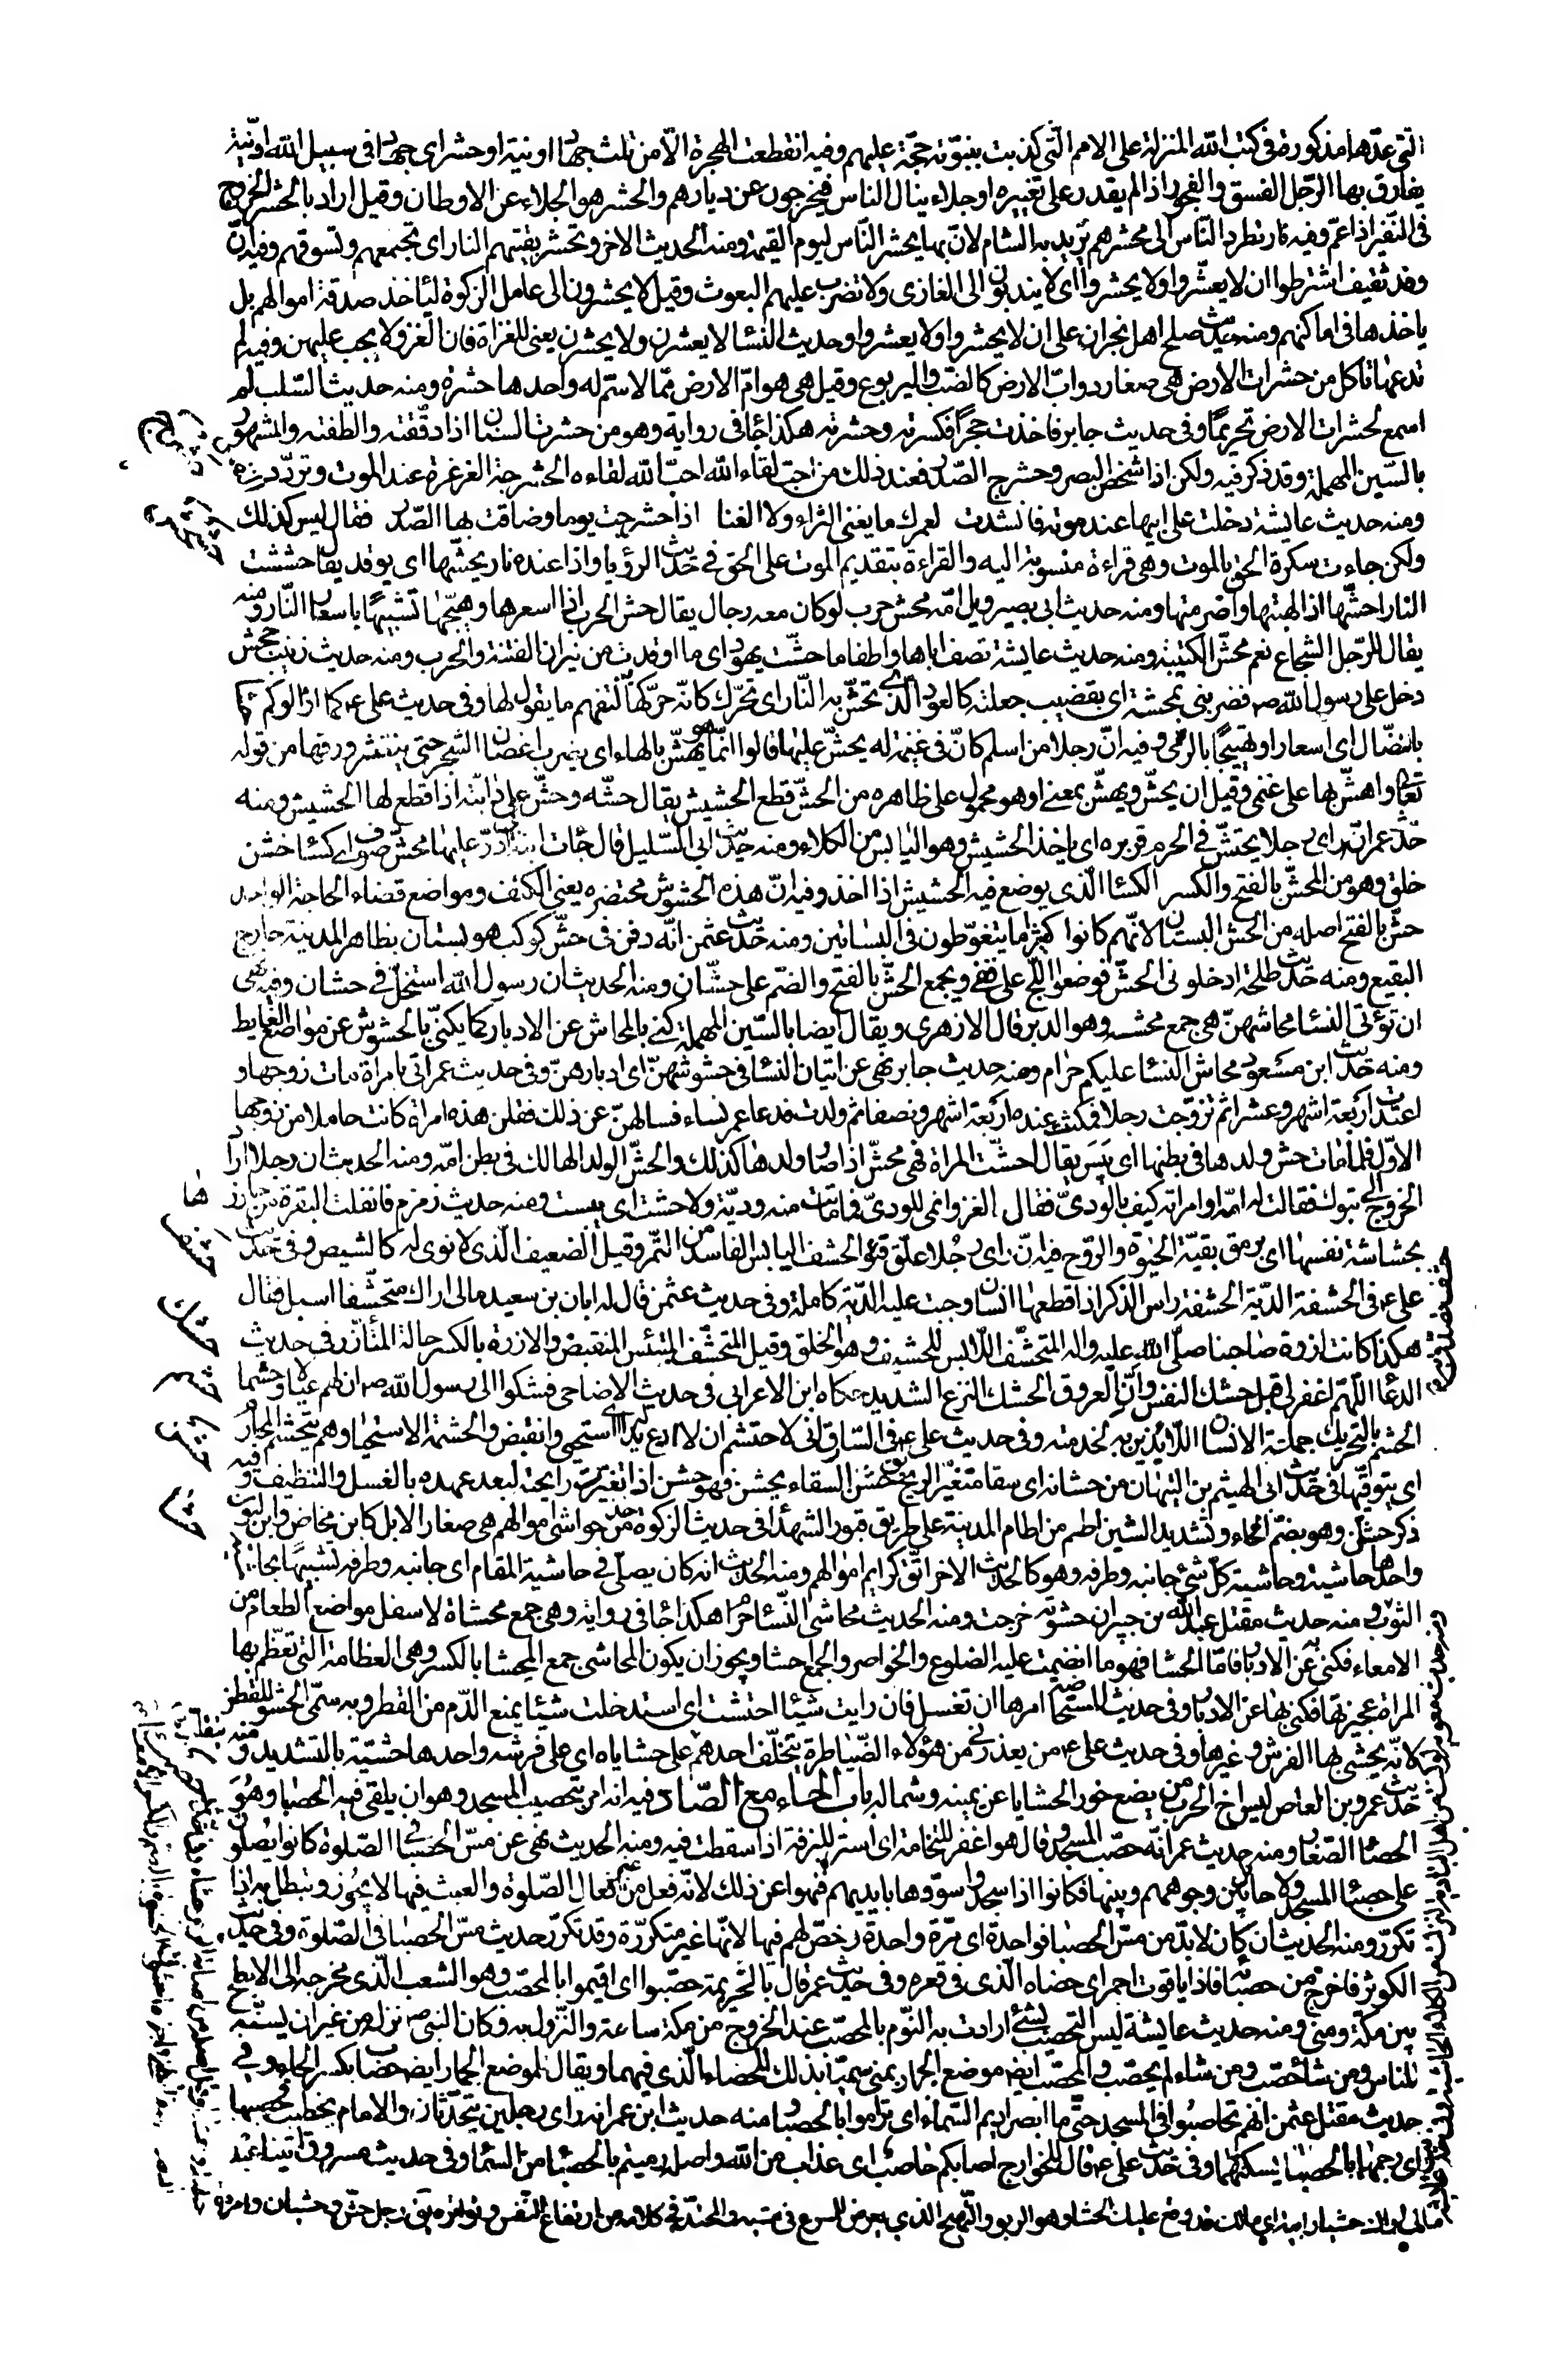 التى عدّها مذكورة فى كتب الله المنزلة على الامم التى كذبت بنبوّته حجّة عليهم وفيه انقطعت الهجرة الّا من ثلث جهاد او نية او حشر اى جهاد فى سبيل الله او نيّة
يفارق بها الرّجل الفسق والفجور اذا لم يقدر على تغييره او جلاء ينال الناس فيخرجون عن ديارهم والحشر هو الجلاء عن الاوطان وقيل اراد بالحشر الخروج
فى النّفير اذا عمّ وفيه نار تطرد النّاس الى محشرهم يريد به الشام لانّ بها يحشر النّاس ليوم القيمة ومنه الحديث الاخر وتحشر بقيتهم النار اى تجمعهم وتسوقهم وفيه انّ
وفد ثقيف اشترطوا ان لا يعشّروا ولا يحشروا اى لا يندبون الى المغازى ولا تضرب عليهم البعوث وقيل لا يحشرون الى عامل الزكوة ليأخذ صدقة اموالهم بل
ياخذها فى اماكنهم ومنه حديث صلح اهل نجران على ان لا يحشروا ولا يعشروا وحديث النسا لا يعشرن ولا يحشرن يعنى للغزاة فان الغزو لا يجب عليهن وفيه لم
تدعها تاكل من حشرات الارض هى صغار دوابّ الارض كالضبّ واليربوع وقيل هى هوامّ الارض ممّا لا سمّ له واحدها حشرة ومنه حديث التلب لم
اسمع لحشرات الارض تحريمًا وفى حديث جابر فاخذت حجرًا فكسرته وحشرته هكذا جا فى رواية وهو من حشرت السنان اذا دقّقته والطفته والمشهور
بالسّين المهملة وقد ذكر فيه ولكن اذا شخص البصر وحشرج الصّدر فعند ذلك من احبّ لقاء الله احبّ الله لقاءه الحشرجة الغرغرة عند الموت وتردّد
ومنه حديث عايشة دخلت على ابيها عند موته فانشدت لعمرك ما يغنى الثراء ولا الغنا اذا حشرجت يوما وضاقت بها الصّدر فقال ليس كذلك
ولكن جاءت سكرة الحق بالموت وهى قراءة منسوبة اليه والقراءة بتقديم الموت على الحق فى حديث الرؤيا واذا عنده نار يحشّها اى يوقد يقال حششت
النار احشّها اذا الهبتها واضرمتها ومنه حديث ابى بصير ويل امّه محش حرب لو كان معه رجال يقال حش الحرب اذا اسعرها وهيّجها تشبيهًا باسعار النّار ومنه
يقال للرّجل الشجاع نعم محشّ الكتيبة ومنه حديث عايشة تصف اباها واطفا ما حشّت يهود اى ما اوقدت من نيران الفتنة والحرب ومنه حديث زينب جحش
دخل على رسول الله ص فضربنى بمحشة اى بقضيب جعلته كالعود الّذى تحشّ به النّار اى تحرّك كانّه حرّكها لتفهم ما يقول لها وفى حديث على ع كما ازالوكم
بالنضال اى اسعارا وتهييجًا بالرمى وفيه انّ رجلا من اسلم كان فى غنيمة له يحشّ عليها قالوا انّما هو يهشّ بالهاء اى يضرب اغصان الشجر حتى ينتشر ورقها من قوله
تعالى واهشّ بها على غنمى وقيل ان يحشّ ويهشّ بمعنى او هو محمول على ظاهره من الحشّ قطع الحشيش يقال حشّه وحشّ على دابّته اذا قطع لها الحشيش ومنه
حديث عمر انّه راى رجلا يحتشّ فى الحرم فزبره اى ياخذ الحشيش وهو اليابس من الكلاء ومنه حديث ابى السّليل قال جائت ابنة ابى ذرّ عليها محشّ صوف اى كسا خشن
خلق وهو من المحشّ بالفتح والكسر الكسا الّذى يوضع فيه الحشيش اذا اخذ وفيه انّ هذه الحشوش محتضره يعنى الكنف ومواضع قضاء الحاجة الواحد
حشّ بالفتح اصله من الحشّ البستان لانهّم كانوا كثيرًا ما يتغوّطون فى البساتين ومنه حديث عثمن انّه دفن فى حشّ كوكب هو بستان بظاهر المدينة خارج
البقيع ومنه حديث طلحة ادخلونى الحشّ فوضعوا اللّج على قفى ويجمع الحشّ بالفتح والضمّ على حشّان ومنه الحديث ان رسول الله استخلى فى حشان وفيه نهى
ان تؤتى النسا فى محاشهنّ هى جمع محشه وهو الدبر قال الازهرى ويقال ايضا بالسّين المهملة كنى بالمحاش عن الادبار كما يكنّى بالحشوش عن مواضع الغايط
ومنه حديث ابن مسعود محاش النسا عليكم حرام ومنه حديث جابر نهى عن اتيان النسا فى حشوشهنّ اى ادبارهنّ وفى حديث عمر اتى بامراة مات زوجها و
اعتدت اربعة اشهر وعشرا ثم تزوّجت رجلا فمكثت عنده اربعة اشهر ونصفا ثم ولدت فدعا عمر نساء فسالهنّ عن ذلك فقلن هذه امراة كانت حاملا من زوجها
الاوّل فلمّا مات حش ولدها فى بطنها اى يبس يقال احشّت المراة فهى محشّ اذا صار ولدها كذلك والحشّ الولد الهالك فى بطن امّه ومنه الحديث ان رجلا اراد
الخروج الى تبوك فقالت له امّه او امراته كيف بالودىّ فقال الغزو انمى للودىّ فما ماتت منه وديّة ولا حشت اى يبست ومنه حديث زمزم فانفلت البقرة من جازرها
بحشاشة نفسها اى برمق بقيّة الحيوة والرّوح فيه انّ راى رجُلا علّق قنو الحشف اليابس الفاسد من التّمر وقيل الضعيف الّذى لا نوى له كالشيص وفى حديث
على ع فى الحشفة الدّية الحشفة راس الذكر اذا قطعها انسان وجبت عليه الدّية كاملة وفى حديث عثمن قال له ابان بن سعيد مالى اراك متحشّفا اسبل فقال
هكذا كانت ازرة صاحبنا صلّى الله عليه واله المتحشّف اللّابس للحشيف وهو الخلق وقيل المتحشّف المبتئس المتقبض والازرة بالكسر حالة المتأزّر فى حديث
الدعا اللّهمّ اغفر لى قبل حشك النفس وانّ العروق الحشك النزع الشديد حكاه ابن الاعرابى فى حديث الاضاحى فشكوا الى رسول الله ص ان لهم عيالا وحشما
الحشم بالتحريك جماعة الانسان اللّايذين به لخدمته وفى حديث على ع فى السّارق انى لا حتشم ان لا ادع له يدا اى استحيى وانقبض والحشمة الاستحيا وهو يتحشّم المحارم
اى يتوقّيها فى حديث ابى الهيثم بن التيهان من حشانه اى سقا متغيّر الريح يق حشن السقاء يحشن فهو حشن اذا تغيّرت رايحته لبعد عهده بالغسل والتنظيف وفيه
ذكر حشّان وهو بضمّ الحاء وتشديد الشين اطم من اطام المدينة على طريق قبور الشهدا فى حديث الزكوة خذ من حواشى اموالهم هى صغار الابل كابن مخاض وابن لبون
واحدها حاشية وحاشية كلّ شئ جانبه وطرفه وهو كالحديث الاخر اتّق كرايم اموالهم ومنه الحديث انه كان يصلّى فى حاشية المقام اى جانبه وطرفه تشبيهًا بحاشية
الثوب ومنه حديث مقتل عبد الله بن جبير ان حشوته خرجت ومنه الحديث محاشى النّسا حرام هكذا جا فى رواية وهى جمع محشاة لاسفل مواضع الطعام من
الامعاء فكنى به عن الادبار فامّا الحشا فهو ما انضمت عليه الضلوع والخواصر والجمع احشا ويجوز ان يكون المحاشى جمع المحشا بالكسر وهى العظامة التى تعظّم بها
المراة عجيزتها فكنى بها عن الادبار وفى حديث المستحاضة امرها ان تغتسل فان رايت شيئا احتشت اى استدخلت شيئا يمنع الدّم من القطر وبه سمّى الحشو للقطن
لانّه يحشى بها الفرش وغيرها وفى حديث على ع من يعذرنى من هؤلاء الضّياطرة يتخلّف احدهم على حشاياه اى على فرشه واحدها حشيّة بالتشديد ومنه
حديث عمرو بن العاص ليس اخ الحرب من يضع خور الحشايا عن يمينه وشماله باب الحاء مع الصّاد فيه انه امر بتحصيب المسجد وهو ان يلقى فيه الحصبا وهُوَ
الحصا الصّغار ومنه حديث عمر انّه حصّب المسجد وقال هو اغفر للنخامة اى استر للبزقة اذا سقطت فيه ومنه الحديث نهى عن مسّ الحصبا فى الصّلوة كانوا يُصلّون
على حصبا المسجد ولا حايل بين وجوههم وبينها فكانوا اذا سجدوا سوّوها بايديهم فنهوا عن ذلك لانّه فعل من غير افعال الصّلوة والعبث فيها لا يجوز وتبطل به اذا
تكرّر ومنه الحديث ان كان لابدّ من مسّ الحصبا فواحدة اى مرّة واحدة رخصّ لهم فيها لانّها غير متكرّرة وقد تكرّر حديث مسّ الحصبا فى الصّلوة وفى حديث
الكوثر فاخرج من حصبائه فاذا ياقوت احمر اى حصاه الّذى فى قعره وفى حديث عمر قال يا لخزيمة حصّبوا اى اقيموا بالمحصّب وهو الشعب الّذى مخرجه الى الابطح
بين مكّة ومنى ومنه حديث عايشة ليس التحصيب بشئ ارادت به النّوم بالمحصّب عند الخروج من مكّة ساعة والنّزول به وكان النبى ص نزله من غير ان يسنّه
للناس فمن شا حصّب ومن شاء لم يحصّب والمحصّب ايض موضع الجمار بمنى سميّا بذلك للحصاء الّذى فيهما ويقال لموضع الجمار ايض حصاب بكسر الحاء وفى
حديث مقتل عثمن انّهم تحاصبُوا فى المسجد حتّى ما ابصر اديم السّماء اى تراموا بالحصبا ومنه حديث ابن عمر انه راى رجلين يتحدّثان والامام يخطب فحصبهما
اى رجمهما بالحصبا يسكتهما وفى حديث على ع قال للخوارج اصابكم حاصب اى عذاب من الله واصله رميتم بالحصبا من السّما وفى حديث مسروق اتينا عبد